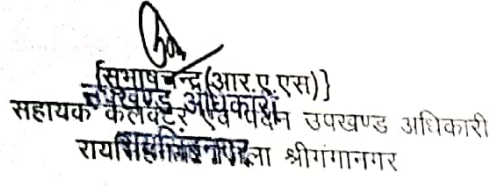 {सुभाषचन्द्र(आर.ए.एस)}
उपखण्ड अधिकारी
सहायक कलक्टर एवं पदेन उपखण्ड अधिकारी
रायसिंहनगर जिला श्रीगंगानगर